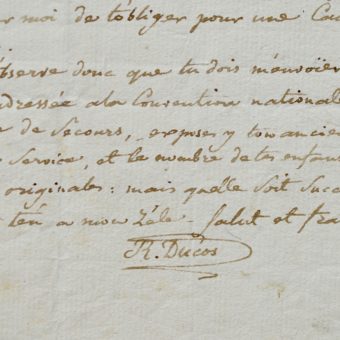 moi de t'obliger pour une
observe donc que tu dois m'envoïer
adressée a la Convention nationale
de Secours, exposes y ton ancien
Service, et le nombre de tes enfans
originales: mais quelle soit Succ
a mon Zèle. Salut et fra
R. Ducos